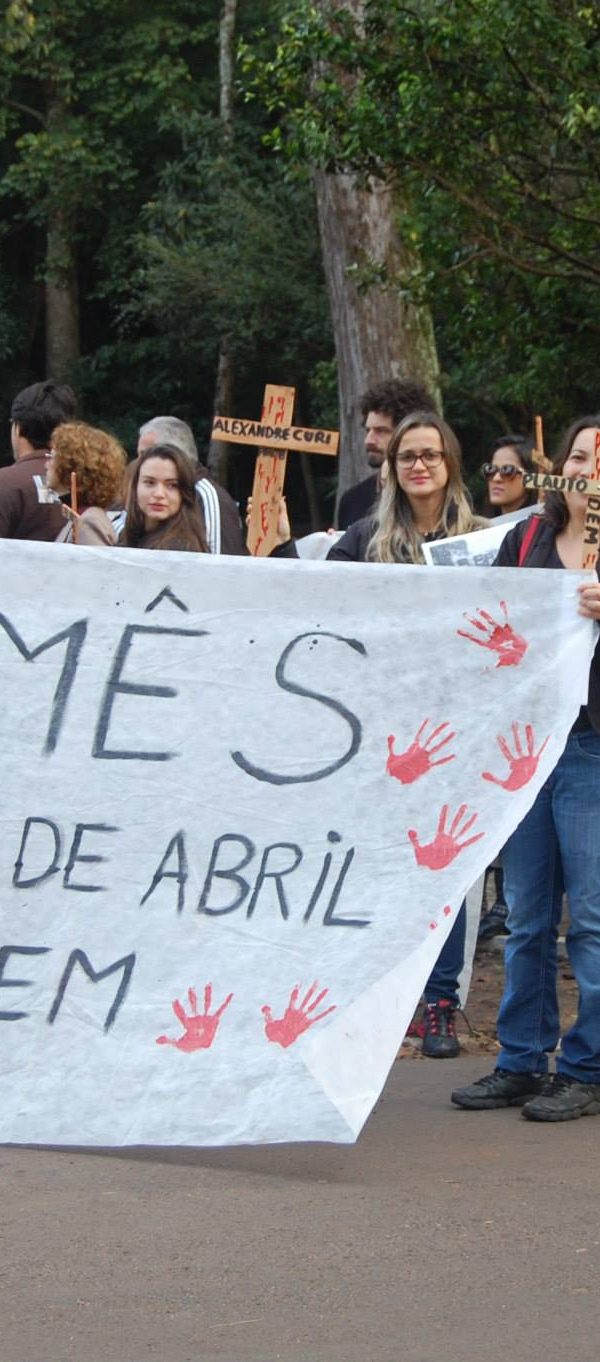 ALEXANDRE CURI
PLAUTO
DEM
MÊS
DE ABRIL
EM